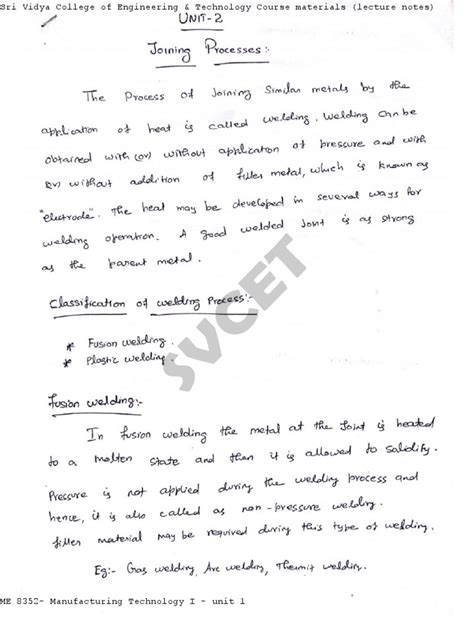 Sri Vidya College of Engineering & Technology Course materials (lecture notes)
UNIT-2
Joining Processes:-
The Process of Joining Similar metals by the
application of heat is called welding. Welding can be
obtained with (or) without application of pressure and with
(or) without addition of filler metal, which is known as
"electrode". The heat may be developed in several ways for
welding operation. A good welded Joint is as strong
as the parent metal.
Classification of welding Process:-
* Fusion welding.
* Plastic welding.
SVCET
Fusion welding:-
In fusion welding the metal at the Joint is heated
to a molten state and then it is allowed to Solidify.
Pressure is not applied during the welding process and
hence, it is also called as non-pressure welding.
filler material may be required during this type of welding.
Eg:- Gas welding, Arc welding, Thermit welding.
ME 8352- Manufacturing Technology I - unit 1